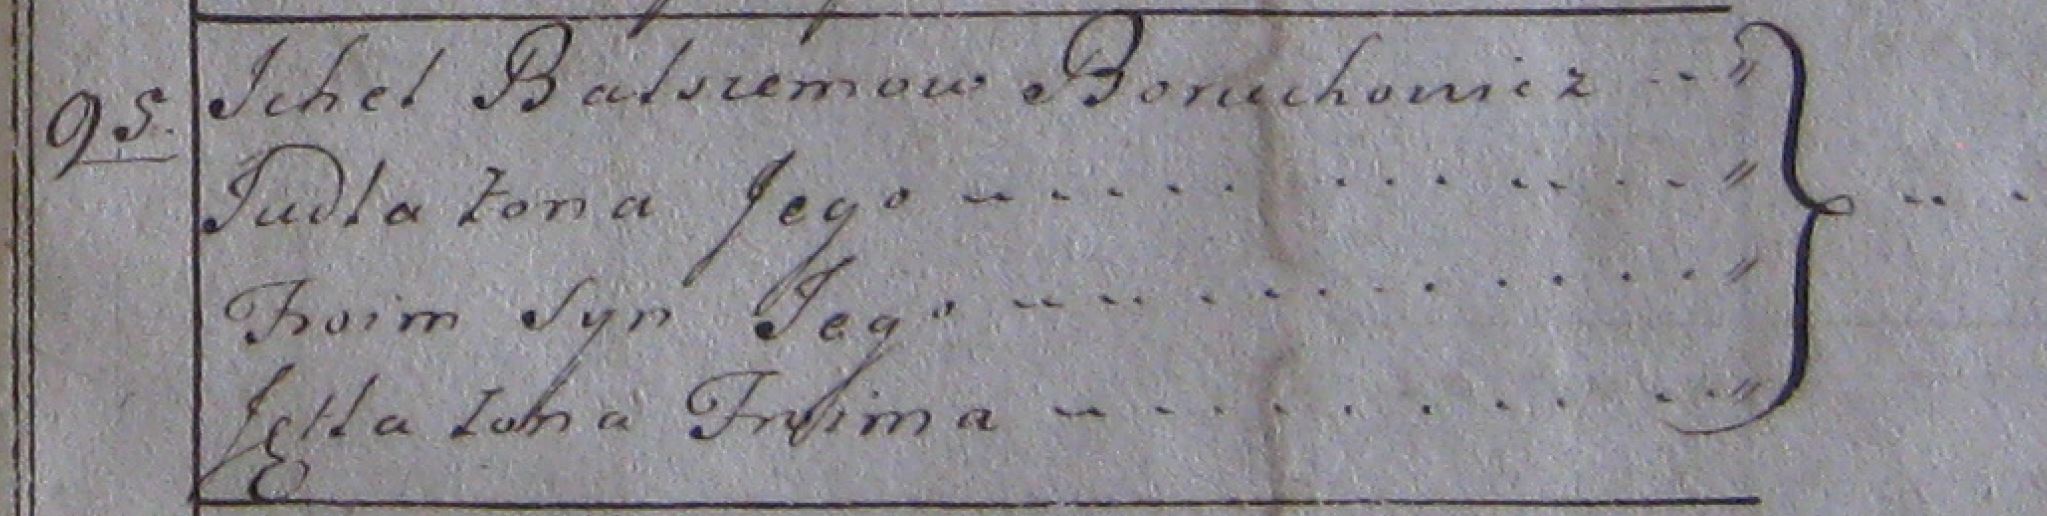 95. Ichel Balszemow Boruchowicz
Judla żona Jego
Froim Syn Jego
Jetla żona Froima